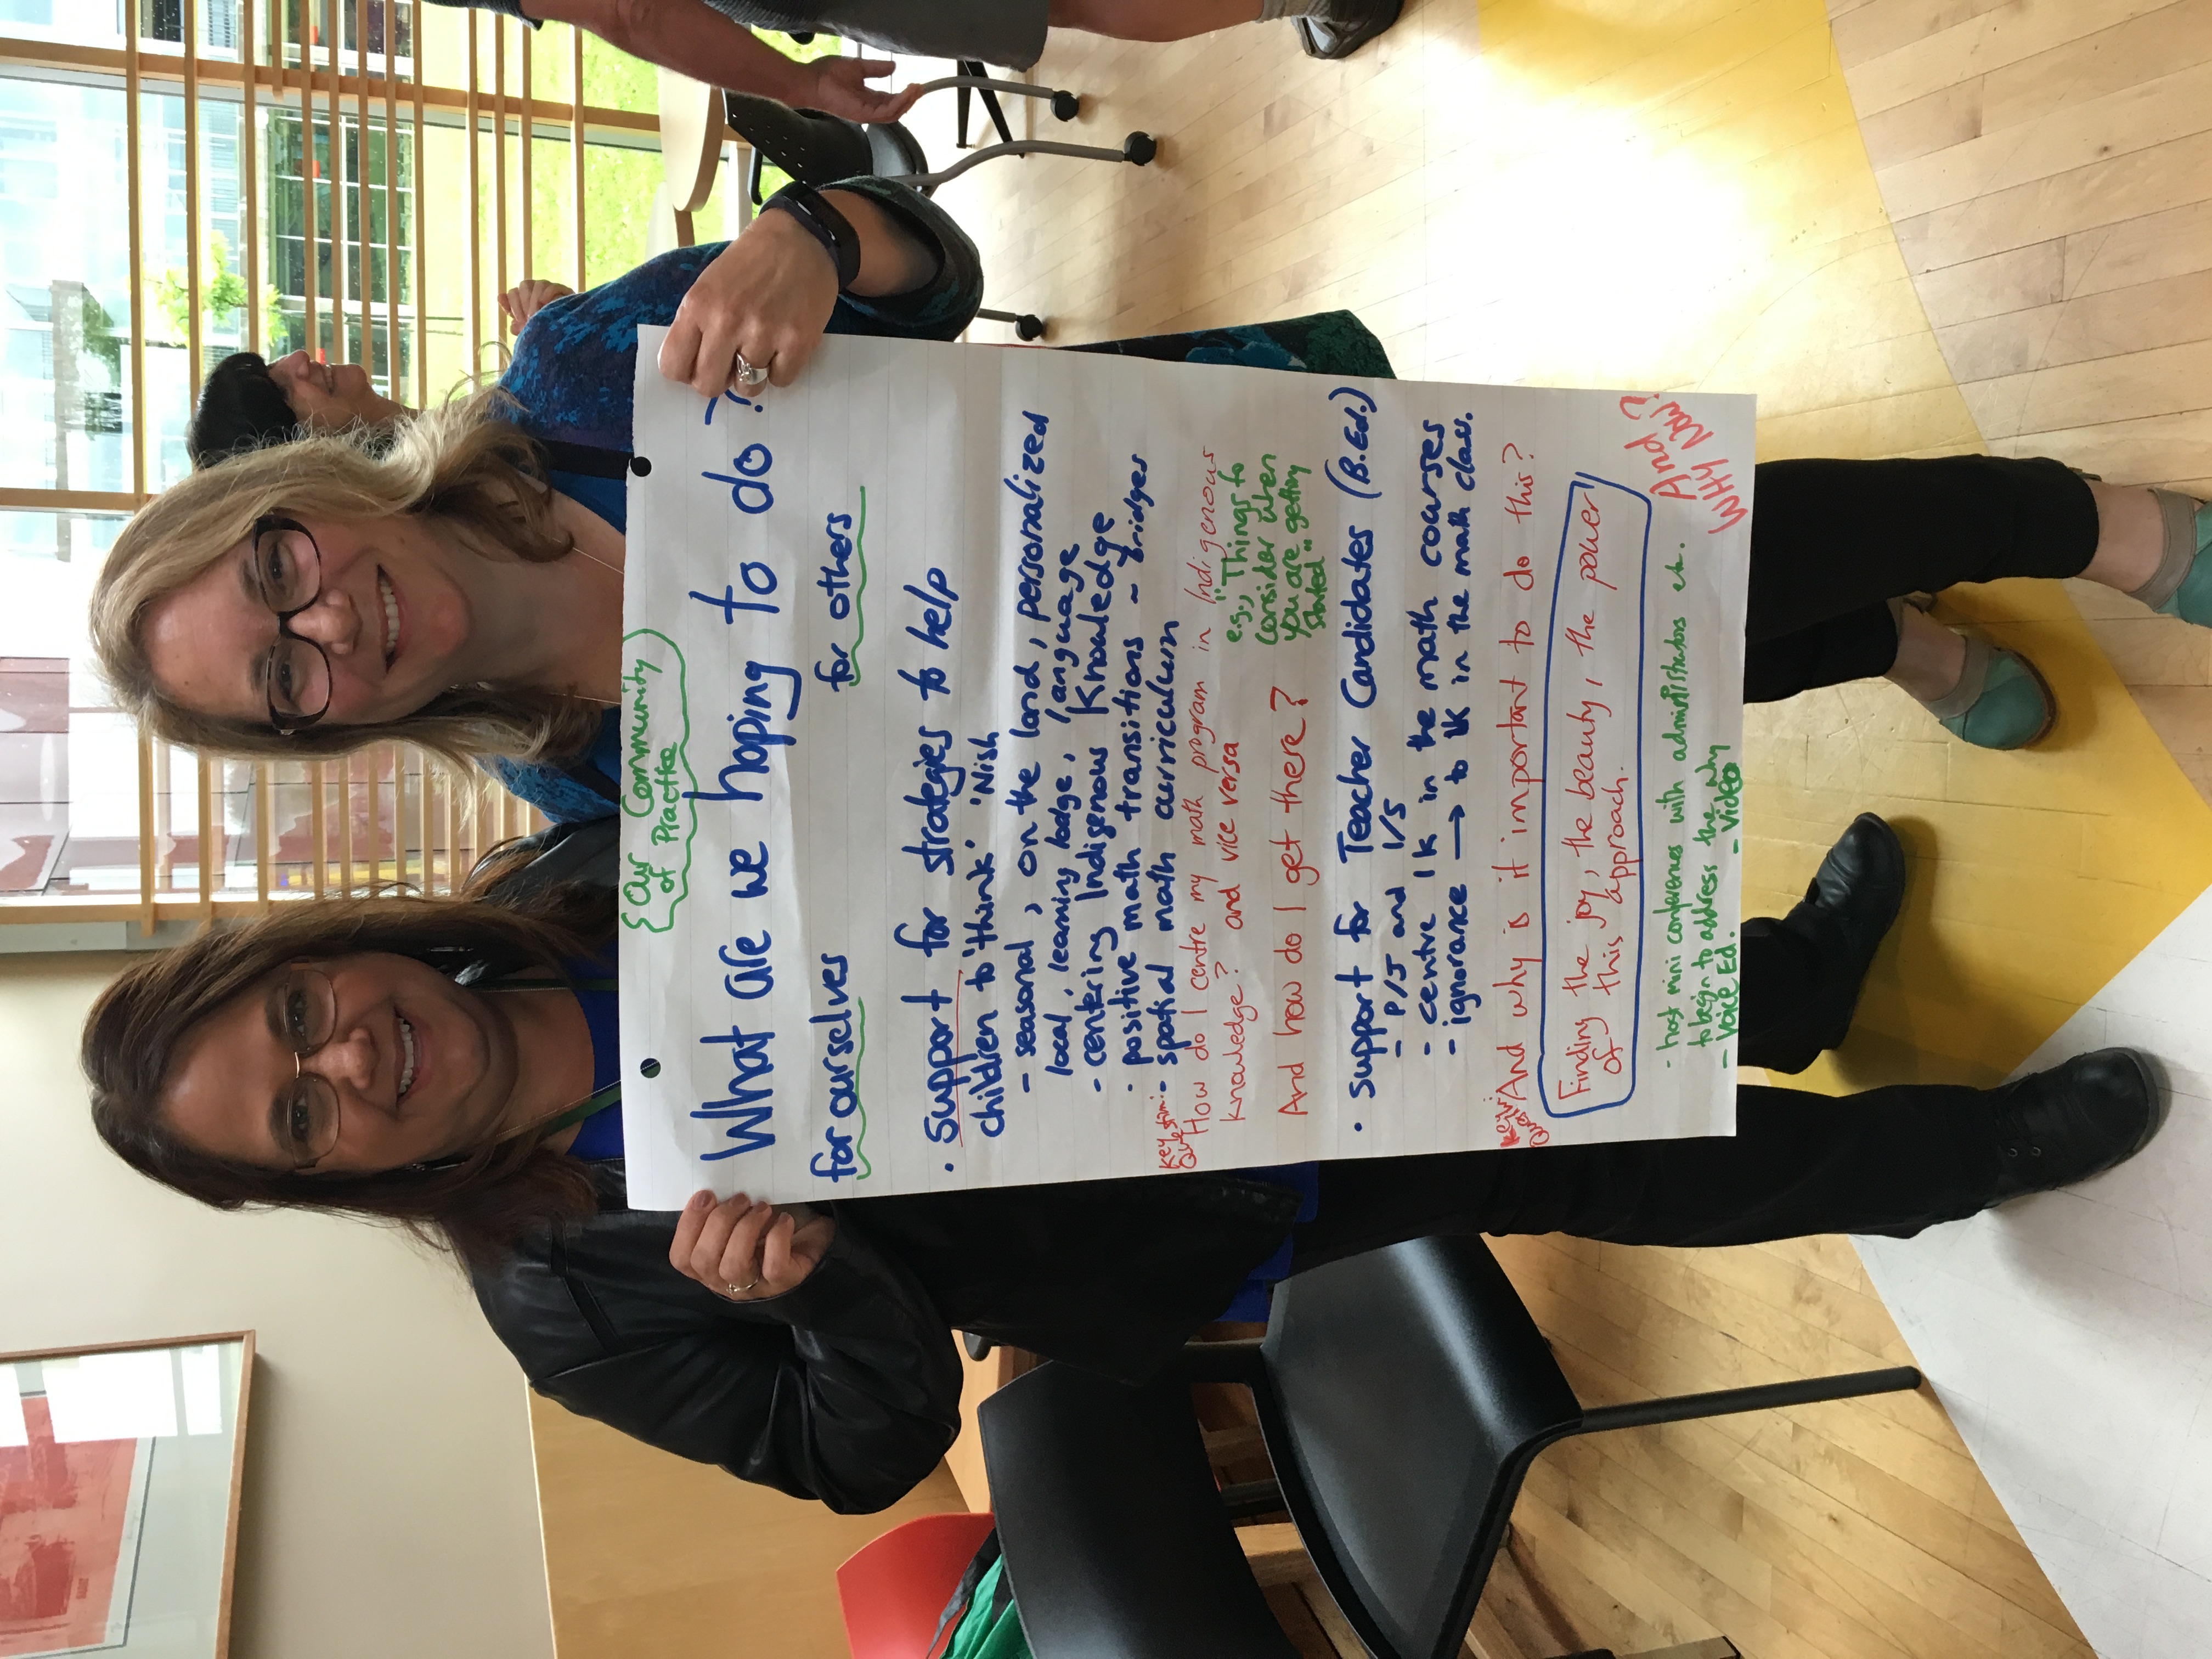 {Our Community
of Practice
What are we hoping to do?
for ourselves for others
• Support for strategies to help
children to 'think' 'Nish
- seasonal, on the land, personalized
local, learning lodge, language
- centering Indigenous Knowledge
• positive math transitions ~ bridges
- spatial math curriculum
Key
Question:
How do I centre my math program in Indigenous
Knowledge? and vice versa
e.g., "Things to
Consider when
you are getting
started"
And how do I get there?
• Support for Teacher Candidates (B.Ed.)
- P/J and I/S
- centre IK in the math courses
- ignorance → to IK in the math class.
Key
And why is it important to do this?
Finding the joy, the beauty, the power
of this approach.
And
Why Now?
- host mini conferences with administrators etc.
to begin to address the why
- Voice Ed. - Video